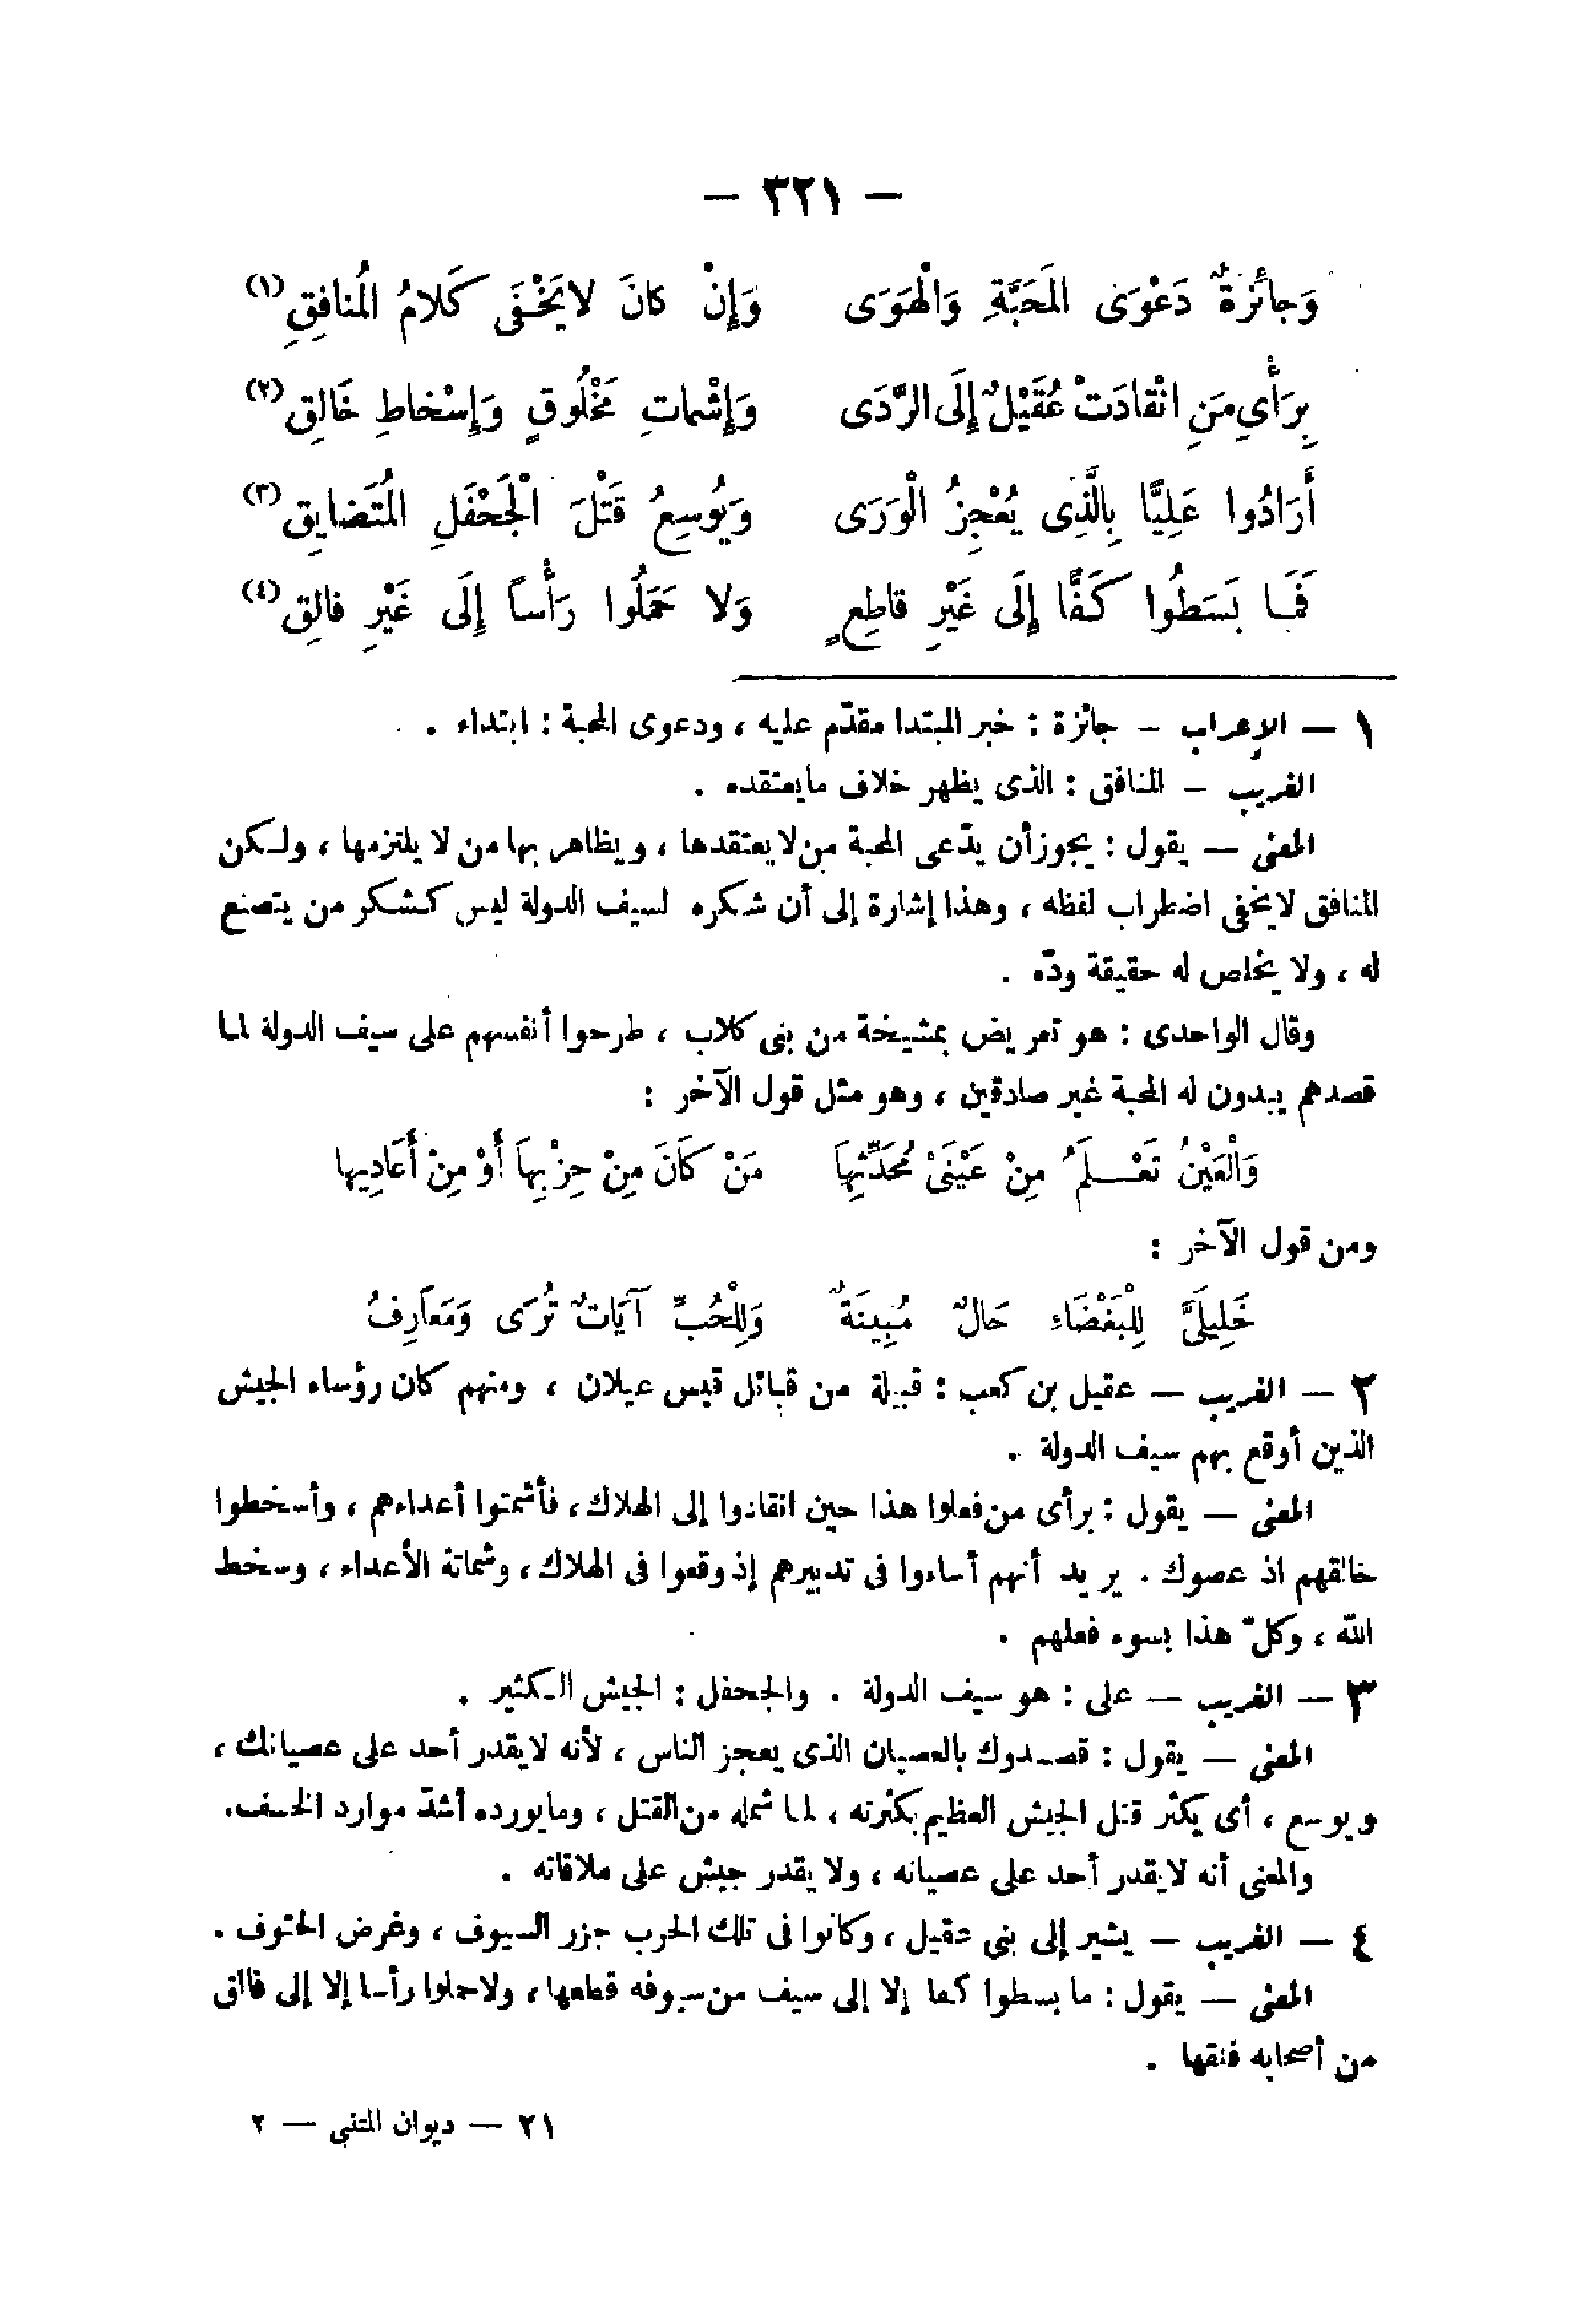 — ٣٢١ —
وَجائِزةٌ دَعْوَى المَحَبَّةِ وَالْهَوَى وَإِنْ كانَ لايَخْفَى كَلامُ المُنافِقِ (١)
بِرَأْىِ مَنِ انْقادَتْ عُقَيْلٌ إِلَى الرَّدَى وَإِشْماتِ مَخْلُوقٍ وَإِسْخاطِ خَالِقِ (٢)
أَرَادُوا عَلِيًّا بِالَّذِى يُعْجِزُ الْوَرَى وَيُوسِعُ قَتْلَ الْجَحْفَلِ المُتَضايِقِ (٣)
فَمَا بَسَطُوا كَفًّا إِلَى غَيْرِ قاطِعٍ وَلا حَمَلُوا رَأْساً إِلَى غَيْرِ فالِقِ (٤)
١ — الإعراب — جائزة : خبر المبتدا مقدّم عليه ، ودعوى المحبة : ابتداء .
الغريب — المنافق : الذى يظهر خلاف مايعتقده .
المعنى — يقول : يجوز أن يدّعى المحبة من لا يعتقدها ، ويظاهر بها من لا يلتزمها ، ولكن
المنافق لايخفى اضطراب لفظه ، وهذا إشارة إلى أن شكره لسيف الدولة ليس كشكر من يتصنع
له ، ولا يخلص له حقيقة ودّه .
وقال الواحدى : هو تعريض بمشيخة من بنى كلاب ، طرحوا أنفسهم على سيف الدولة لما
قصدهم يبدون له المحبة غير صادقين ، وهو مثل قول الآخر :
وَالْعَيْنُ تَعْلَمُ مِنْ عَيْنَىْ مُحَدِّثِهاَ مَنْ كَانَ مِنْ حِزْبِهاَ أَوْ مِنْ أَعَادِيها
ومن قول الآخر :
خَلِيلَىَّ لِلْبَغْضَاءِ حَالٌ مُبِينَةٌ وَلِلْحُبِّ آيَاتٌ تُرَى وَمَعَارِفُ
٢ — الغريب — عقيل بن كعب : قبيلة من قبائل قيس عيلان ، ومنهم كان رؤساء الجيش
الذين أوقع بهم سيف الدولة .
المعنى — يقول : برأى من فعلوا هذا حين انقادوا إلى الهلاك ، فأشمتوا أعداءهم ، وأسخطوا
خالقهم اذ عصوك . يريد أنهم أساءوا فى تدبيرهم إذ وقعوا فى الهلاك ، وشماتة الأعداء ، وسخط
الله ، وكلّ هذا بسوء فعلهم .
٣ — الغريب — على : هو سيف الدولة . والجحفل : الجيش الكثير .
المعنى — يقول : قصدوك بالعصيان الذى يعجز الناس ، لأنه لايقدر أحد على عصيانك ،
ويوسع ، أى يكثر قتل الجيش العظيم بكثرته ، لما شمله من القتل ، ومايورده أشدّ موارد الخسف .
والمعنى أنه لايقدر أحد على عصيانه ، ولا يقدر جيش على ملاقاته .
٤ — الغريب — يشير إلى بنى عقيل ، وكانوا فى تلك الحرب جزر السيوف ، وغرض الحتوف .
المعنى — يقول : ما بسطوا كفا إلا إلى سيف من سيوفه قطعها ، ولاحملوا رأسا إلا إلى فالق
من أصحابه فلقها .
٢١ — ديوان المتنبى — ٢